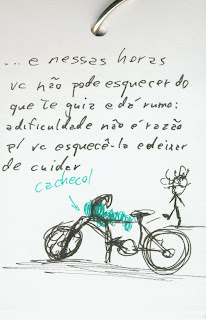 ... e nessas horas
vc não pode esquecer do
que te guia e dá rumo:
a dificuldade não é razão
p/ vc esquecê-la e deixar
de cuidar
cachecol